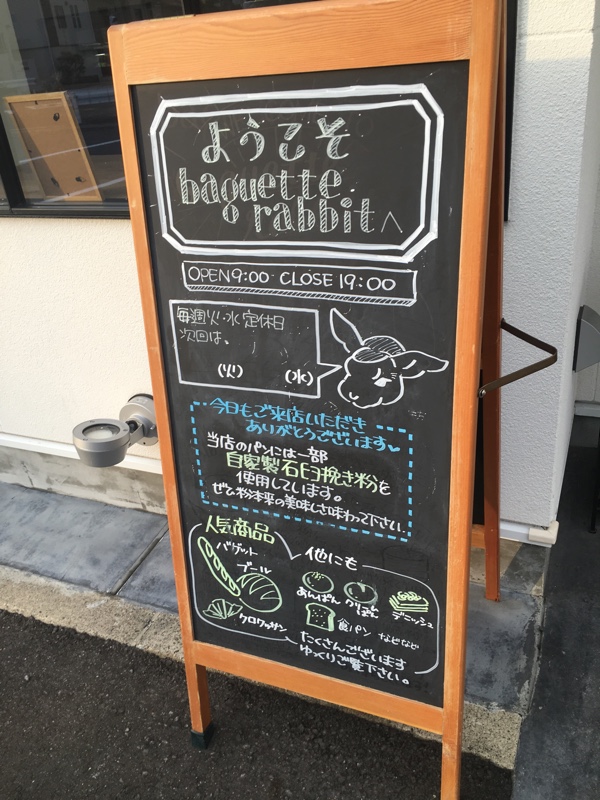 ようこそ
baguette
rabbit へ
OPEN 9:00 CLOSE 19:00
毎週火・水 定休日
次回は、
(火) (水)
今日もご来店いただき
ありがとうございます♥
当店のパンには一部
自家製石臼挽き粉を
使用しています。
ぜひ粉本来の美味しさ味わって下さい.
人気商品
バゲット
ブール
クロワッサン
他にも
あんぱん
クリーム
ぱん
デニッシュ
食パン
などなど
たくさんございます
ゆっくりご覧下さい。